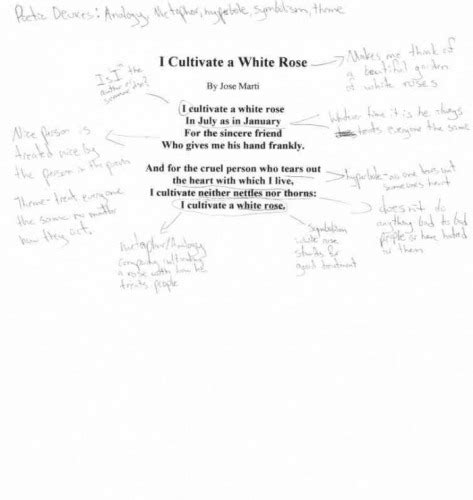 Poetic Devices: Analogy, Metaphor, hyperbole, symbolism, theme
I Cultivate a White Rose
Makes me think of
a beautiful garden
of white roses
Is "I" the
author or
someone else?
By Jose Marti
I cultivate a white rose
In July as in January
For the sincere friend
Who gives me his hand frankly.
Whatever time it is he always
treats everyone the same
Nice person is
treated nice by
the person in the poem
And for the cruel person who tears out
the heart with which I live,
I cultivate neither nettles nor thorns:
I cultivate a white rose.
hyperbole - no one tears out
someones heart
Theme - treat everyone
the same no matter
how they act.
doesn't do
anything bad to bad
people or have hatred
in them
Metaphor/Analogy
comparing cultivating
a rose with how he
treats people
Symbolism
white rose
stands for
good treatment